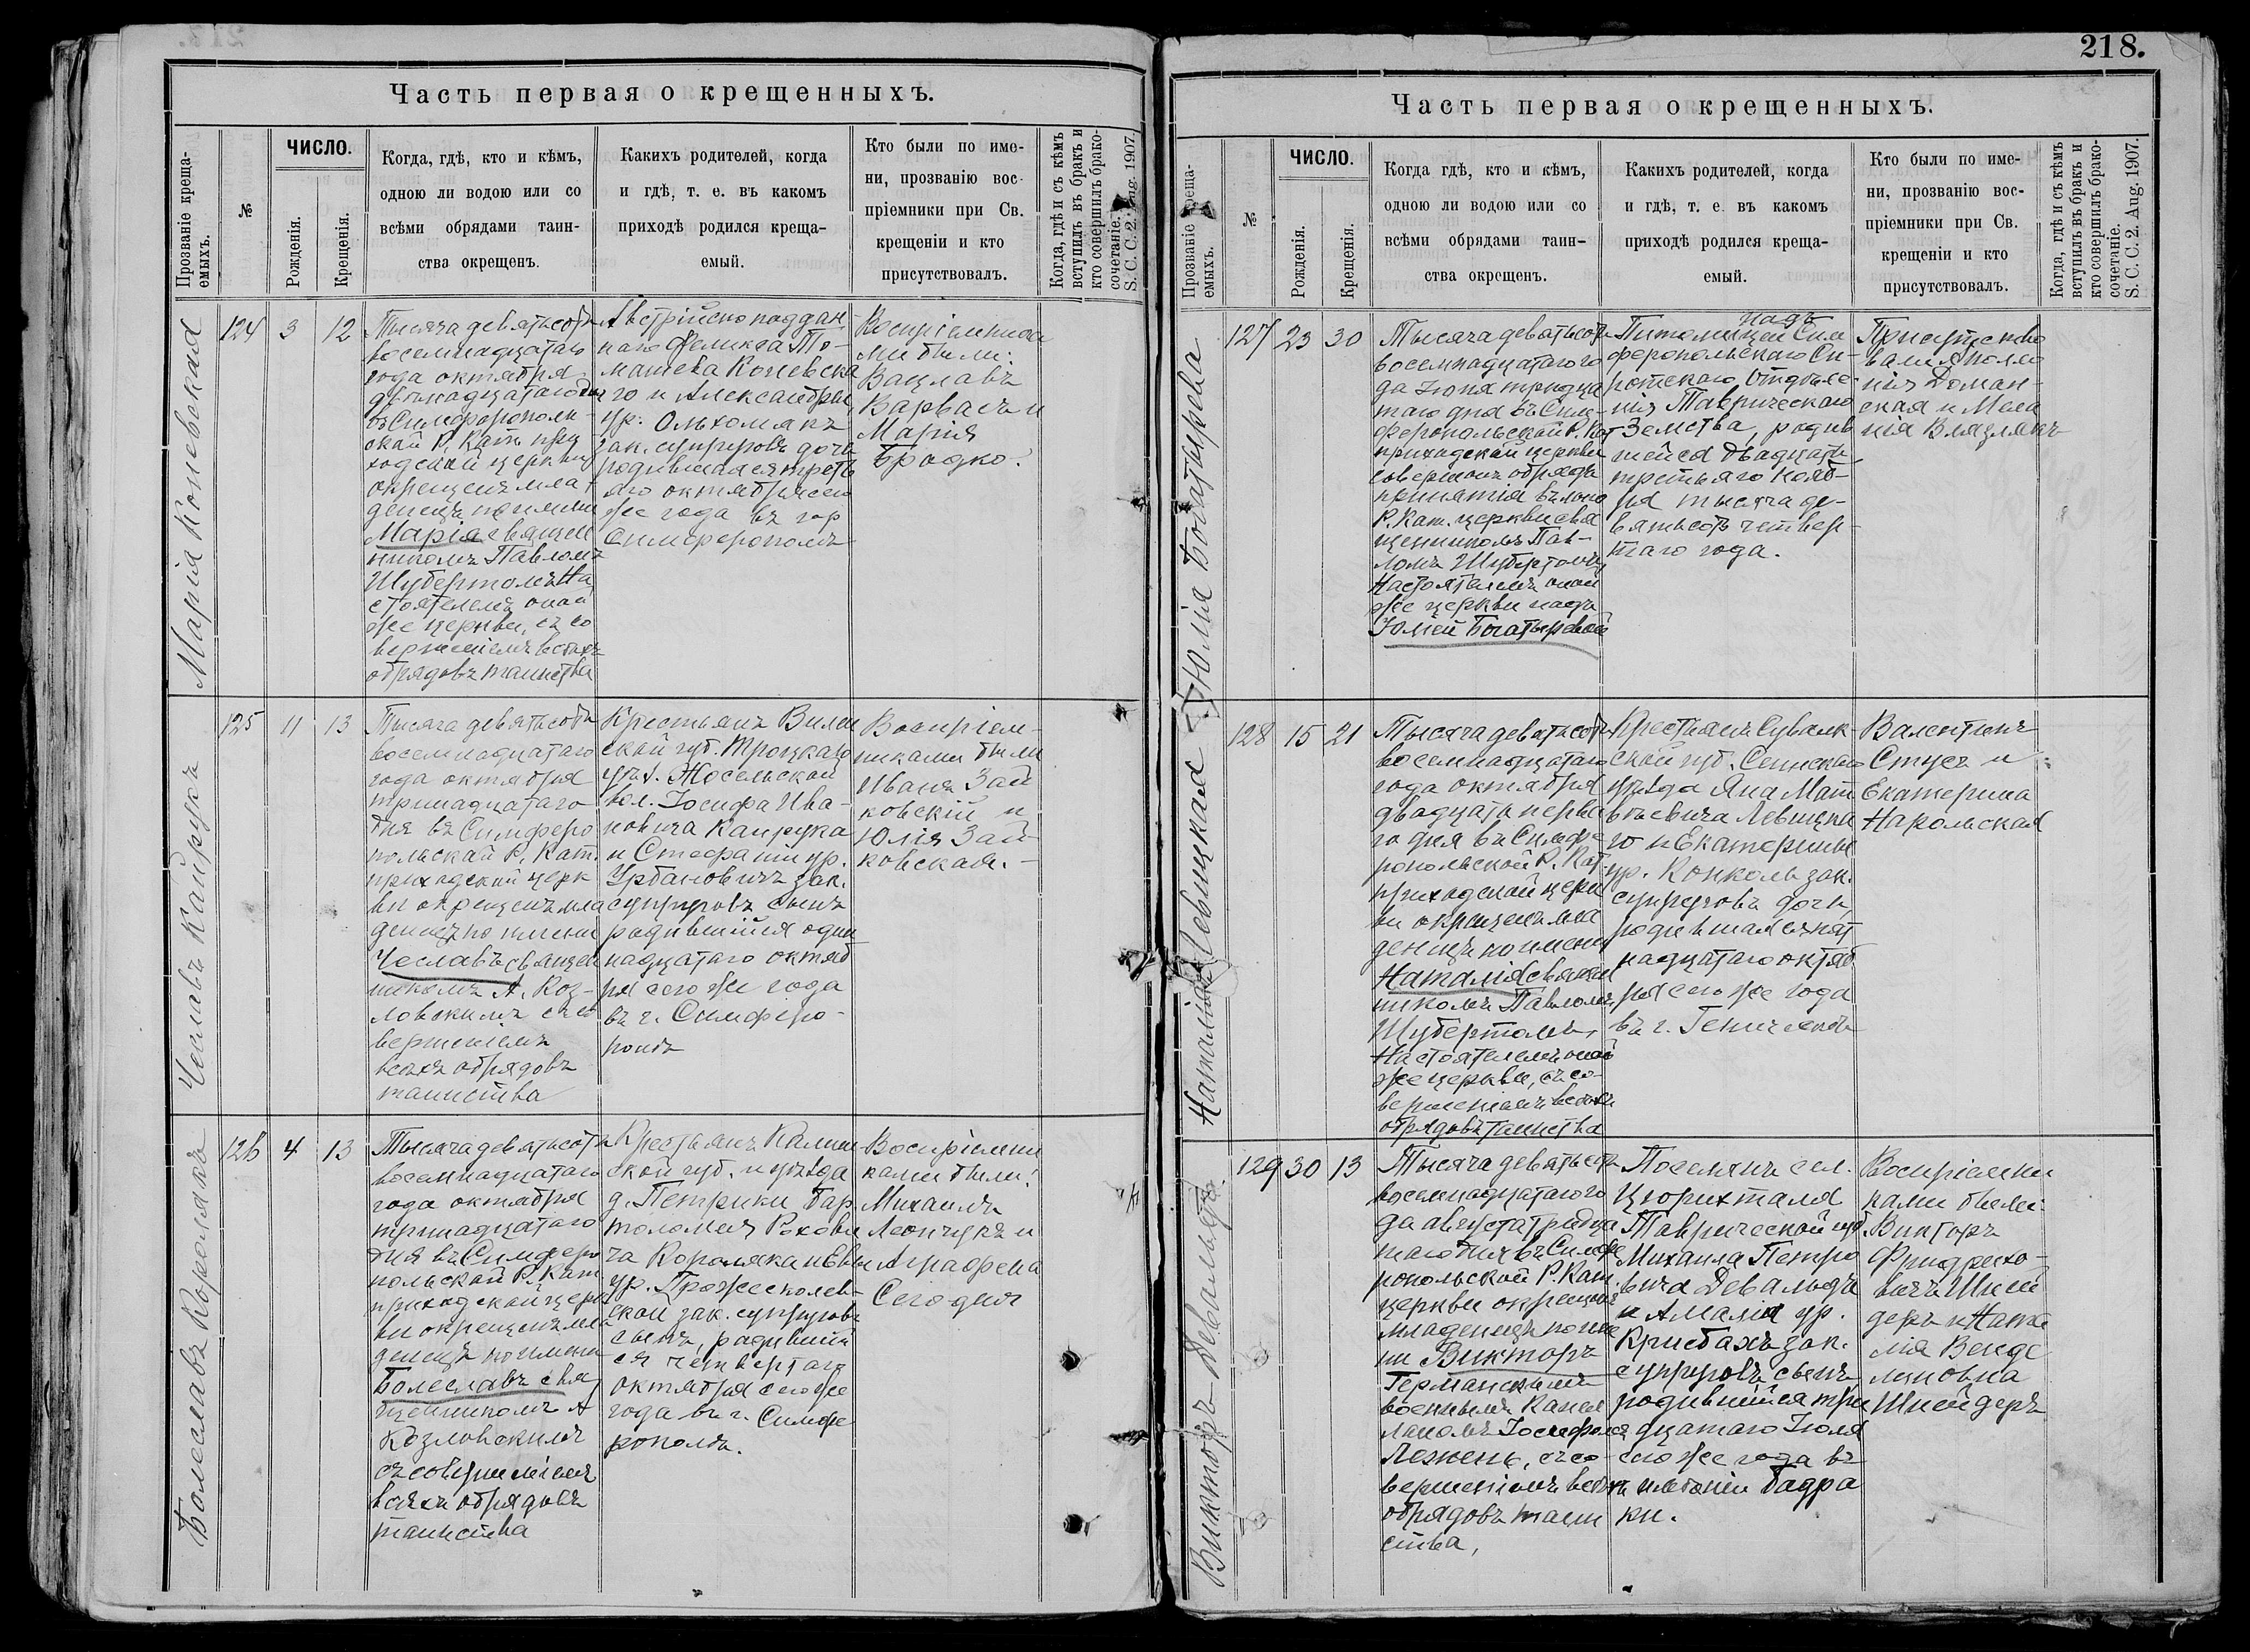 218.
Часть первая о крещенныхъ.
Прозваніе креща-
емыхъ.
№
ЧИСЛО.
Рожденія.
Крещенія.
Когда, гдѣ, кто и кѣмъ,
одною ли водою или со
всѣми обрядами таин-
ства окрещенъ.
Какихъ родителей, когда
и гдѣ, т. е. въ какомъ
приходѣ родился креща-
емый.
Кто были по име-
ни, прозванію вос-
пріемники при Св.
крещеніи и кто
присутствовалъ.
Когда, гдѣ и съ кѣмъ
вступилъ въ бракъ и
кто совершилъ брако-
сочетаніе.
S. C. C. 2. Aug. 1907.
Марія Коневская
124
3
12
Тысяча девятьсотъ
восемнадцатаго
года октября
двѣнадцатаго дня
въ Симферополь-
ской Р. Кат. при
ходской церкви
окрещенъ мла
денецъ по имени
Марія священ
никомъ Павломъ
Шубертомъ На
стоятелемъ оной
же церкви, съ со
вершеніемъ всѣхъ
обрядовъ таинства
Австрійско поддан-
наго Феликса То-
машева Коневска
го и Александры
ур. Ольхомякъ
зак. супруговъ дочь
родившаяся треть
яго октября сего
же года въ гор
Симферополѣ
Воспріемника
ми были:
Вацлавъ
Варвасъ и
Марія
Бродко.
Чеславъ Кайрукъ
125
11
13
Тысяча девятьсотъ
восемнадцатаго
года октября
тринадцатаго
дня въ Симферо
польской Р. Кат.
приходской церк
ви окрещенъ мла
денецъ по имени
Чеславъ священ
никомъ А. Коз-
ловскимъ съ со
вершеніемъ
всѣхъ обрядовъ
таинства
Крестьянъ Вилен
ской губ. Троцкаго
уѣз. Жосельской
вол. Іосифа Ива-
новича Кайрука
и Стефаніи ур.
Урбановичъ зак.
супруговъ сынъ
родившійся один
надцатаго октяб
ря сего же года
въ г. Симферо-
полѣ
Воспріем-
никами были
Иванъ Зай
ковскій и
Юлія Зай
ковская.-
Болеславъ Королякъ
126
4
13
Тысяча девятьсотъ
восемнадцатаго
года октября
тринадцатаго
дня въ Симферо
польской Р. Кат
приходской церк
ви окрещенъ мла
денецъ по имени
Болеславъ свя
щенникомъ А
Козловскимъ
съ совершеніемъ
всѣхъ обрядовъ
таинства
Крестьянъ Калиш
ской губ. и уѣзда
д. Петрики Вар
толомея Рохови
ча Короляка и Евы
ур.
ской зак. супруговъ
сынъ, родивший
ся четвертаго
октября сего же
года въ г. Симфе
рополѣ.
Воспріемни
ками были:
Михаилъ
Леончукъ и
Аграфена
Сегодня
Часть первая о крещенныхъ.
Прозваніе креща-
емыхъ.
№
ЧИСЛО.
Рожденія.
Крещенія.
Когда гдѣ, кто и кѣмъ,
одною ли водою или со
всѣми обрядами таин-
ства окрещенъ.
Какихъ родителей, когда
и гдѣ, т. е. въ какомъ
приходѣ родился креща-
емый.
Кто были по име-
ни, прозванію вос-
пріемники при Св.
крещеніи и кто
присутствовалъ.
Когда, гдѣ и съ кѣмъ
вступилъ въ бракъ и
кто совершилъ брако-
сочетаніе.
S. C. C. 2. Aug. 1907.
Юлія Богатырева
127
23
30
Тысяча девятьсотъ
восемнадцатаго го
да Іюня тридца
таго дня въ Сим-
феропольской Р. Кат
приходской церкви
совершонъ обрядъ
принятія въ лоно
Р. Кат. церкви свя
щенникомъ Пав-
ломъ Шубертомъ
Настоятелемъ оной
же церкви надъ
Юліей Богатыревой
надъ
Питомицей Сим
феропольскаго Си-
ротскаго Отдѣле-
нія Таврическаго
Земства, родив
шейся двадцать
третьяго Нояб-
ря тысяча де-
вятьсотъ четвер-
таго года.
Присутство
вали Аполо
нія Доман-
ская и Мела
нія
Наталія Левицкая
128
15
21
Тысяча девятьсотъ
восемнадцатаго
года октября
двадцать перва
го дня въ Симфе
ропольской Р. Кат.
приходской церк
ви окрещенъ мла
денецъ по имени
Наталія священ
никомъ Павломъ
Шубертомъ,
Настоятелемъ оной
же церкви, съ со-
вершеніемъ всѣхъ
обрядовъ таинства
Крестьянъ Сувалк-
ской губ. Сейнскаго
уѣзда Яна Мат
вѣевича Левицка
го и Екатерины
ур. Конколь зак.
супруговъ дочь,
родившаяся пят
надцатаго октяб
ря сего же года
въ г. Геническѣ
Валентинъ
Стусъ и
Екатерина
Напольская
Викторъ Девальдъ
129
30
13
Тысяча девятьсотъ
восемнадцатаго го
да августа тридца
таго дня въ Симфе
ропольской Р. Кат.
церкви окрещенъ
младенецъ по име
ни Викторъ
Германскимъ
военнымъ Капел
ланомъ Іосифомъ
съ со
вершеніемъ всѣхъ
обрядовъ таин
ства,
Поселянъ сел.
Цюрихталя
Таврической губ
Михаила Петро
вича Девальдъ
и Амалія ур.
Крисбахъ зак.
супруговъ сынъ
родившійся три
дцатаго Іюля
сего же года въ
имѣніи Бадра
ки.
Воспріемни
ками были:
Викторъ
Фридрихо-
вичъ Шней
деръ и Ната
лія Венде
линовна
Шнейдеръ